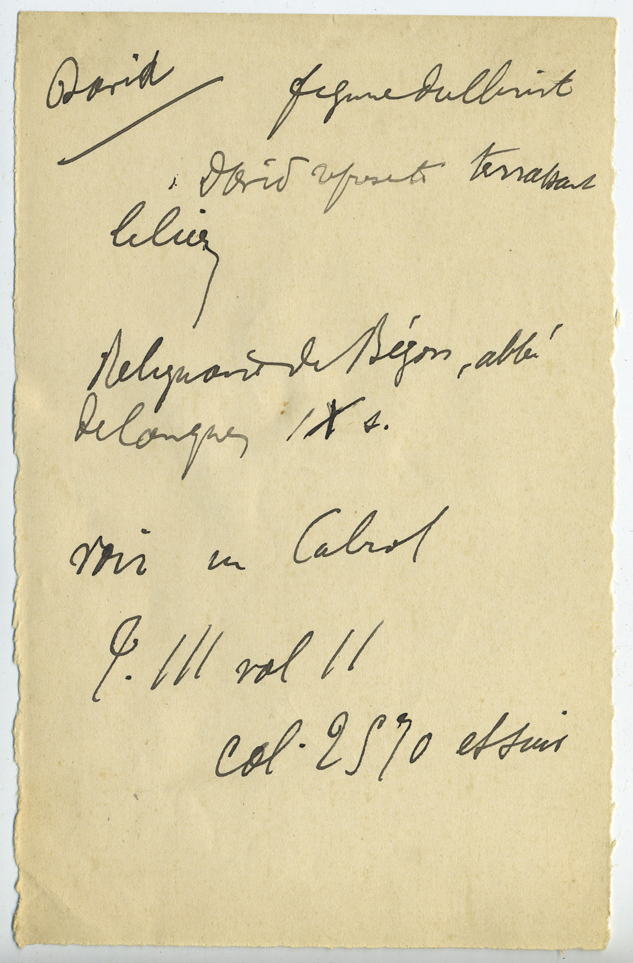 David figure du Christ
David représente terrassant
le lion
Reliquaire de Bégon, abbé
de Conques IX s.
voir in Cabrol
T. III vol II
col. 2570 et suiv